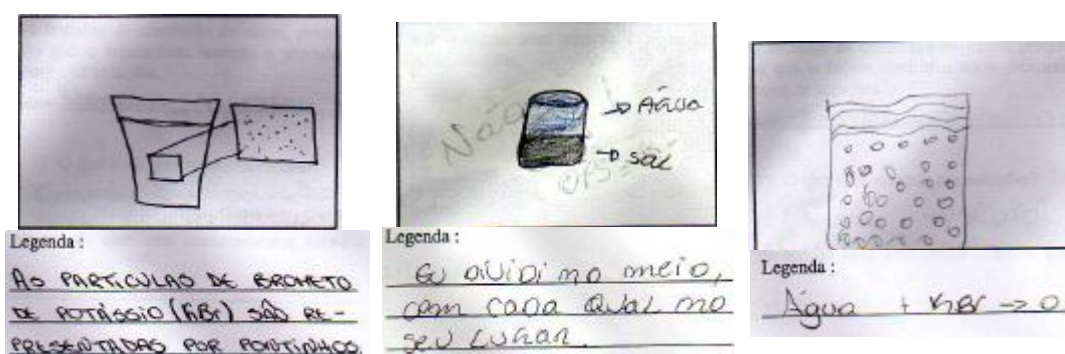 Legenda :
AS PARTICULAS DE BROMETO
DE POTÁSSIO (KBr) SÃO RE-
PRESENTADAS POR PONTINHOS.
Água
sal
Não
Legenda :
Eu dividi no meio,
com cada qual no
seu lugar.
Legenda :
Água + KBr -> O